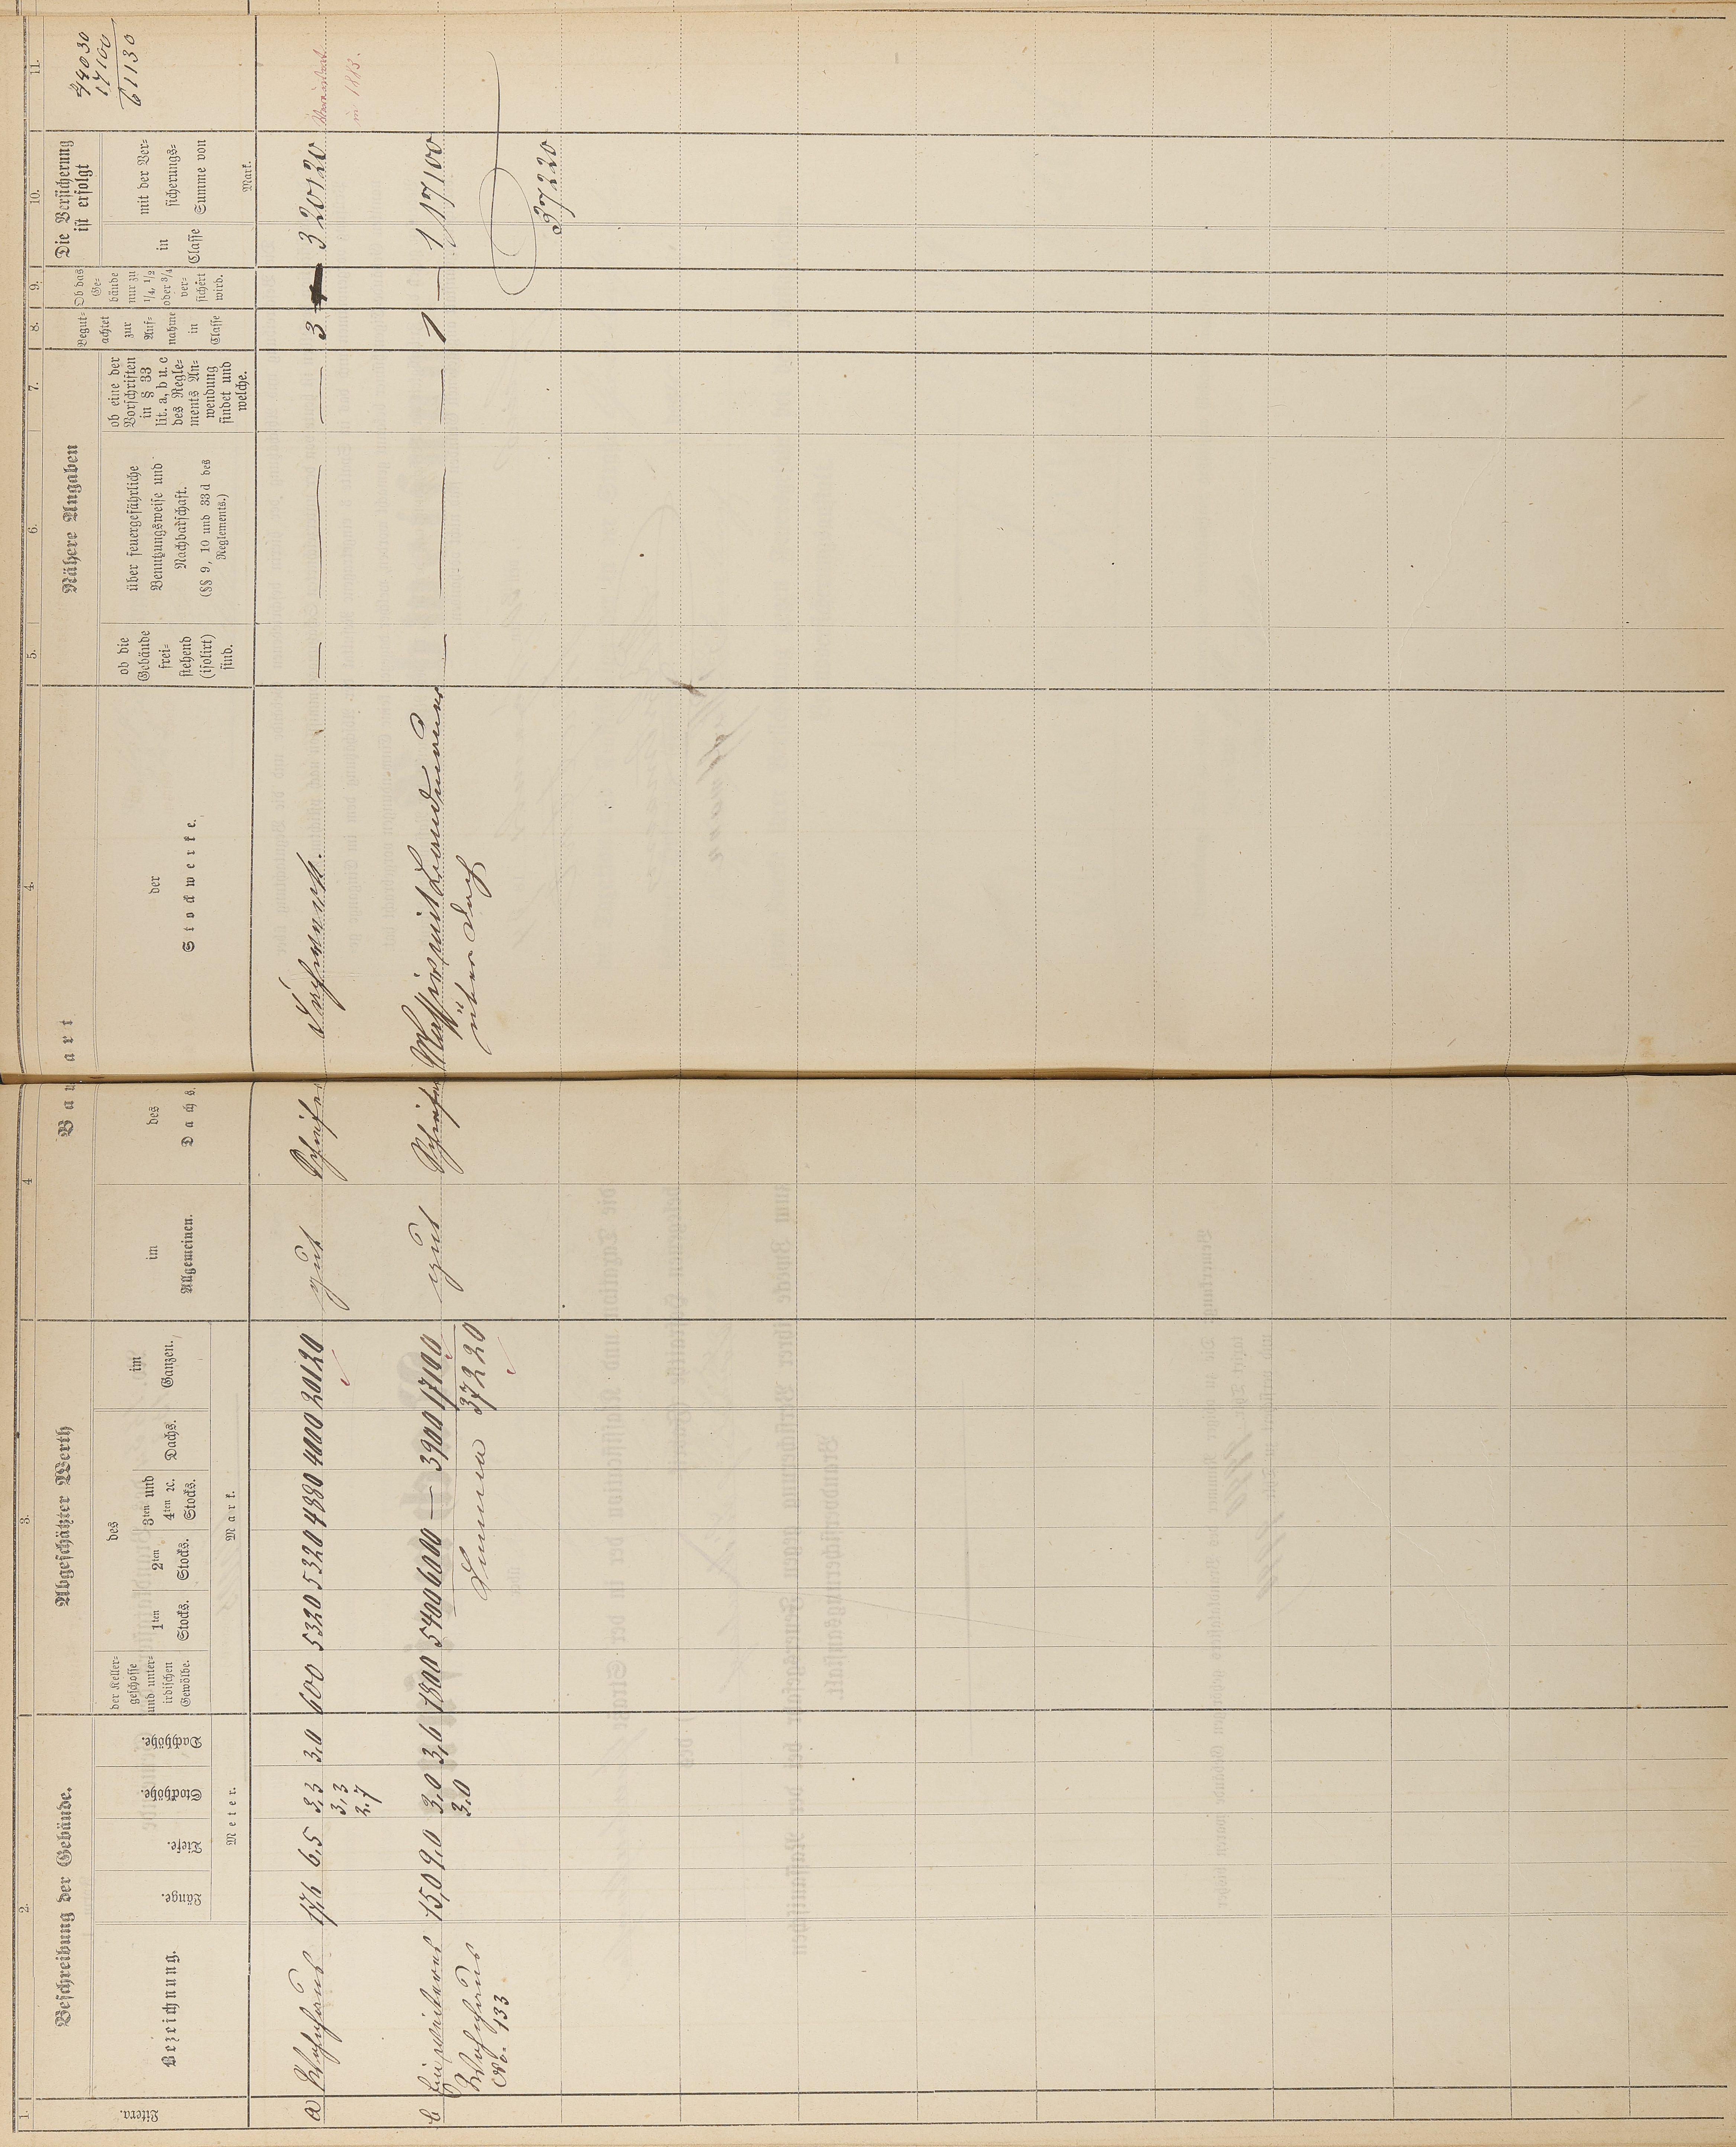 1.
2.
3.
4
4.
5.
6.
7.
8.
9.
10.
11.
Litera.
Beschreibung der Gebäude.
Bezeichnung.
Länge.
Tiefe.
Stockhöhe.
Dachhöhe.
Meter.
Abgeschätzter Werth
der Keller-
geschosse
und unter-
irdischen
Gewölbe.
des
1ten
Stocks.
2ten
Stocks.
3ten und
4ten ꝛc.
Stocks.
Dachs.
im
Ganzen.
Mark.
Bauart
im
Allgemeinen.
des
Dachs.
der
Stockwerke.
Nähere Angaben
ob die
Gebäude
frei-
stehend
(isolirt)
sind.
über feuergefährliche
Benutzungsweise und
Nachbarschaft.
(§§ 9, 10 und 33 d des
Reglements.)
ob eine der
Vorschriften
in § 33
lit. a, b u. c
des Regle-
ments An-
wendung
findet und
welche.
Begut-
achtet
zur
Auf-
nahme
in
Classe
Ob das
Ge-
bäude
nur zu
1/4, 1/2
oder 3/4
ver-
sichert
wird.
Die Versicherung
ist erfolgt
in
Classe
mit der Ver-
sicherungs-
Summe von
Mark.
44030
17100
61130
a Wohnhaus 17,6 6,5 3,3 3,0 600 5320 5320 4880 4000 20120 gut Schiefer Fachwerk. — — — 3 3 20120
3,3
2,7
in 1883.
b Ein weiteres 15,0 9,0 3,0 3,6 1800 5400 6000 — 3900 17100 gut Schiefer Massiv mit Brandmauer — — — 1 — 1 17100
Wohnhaus 3,0 Summa 37220 über Dach
No. 133
37220